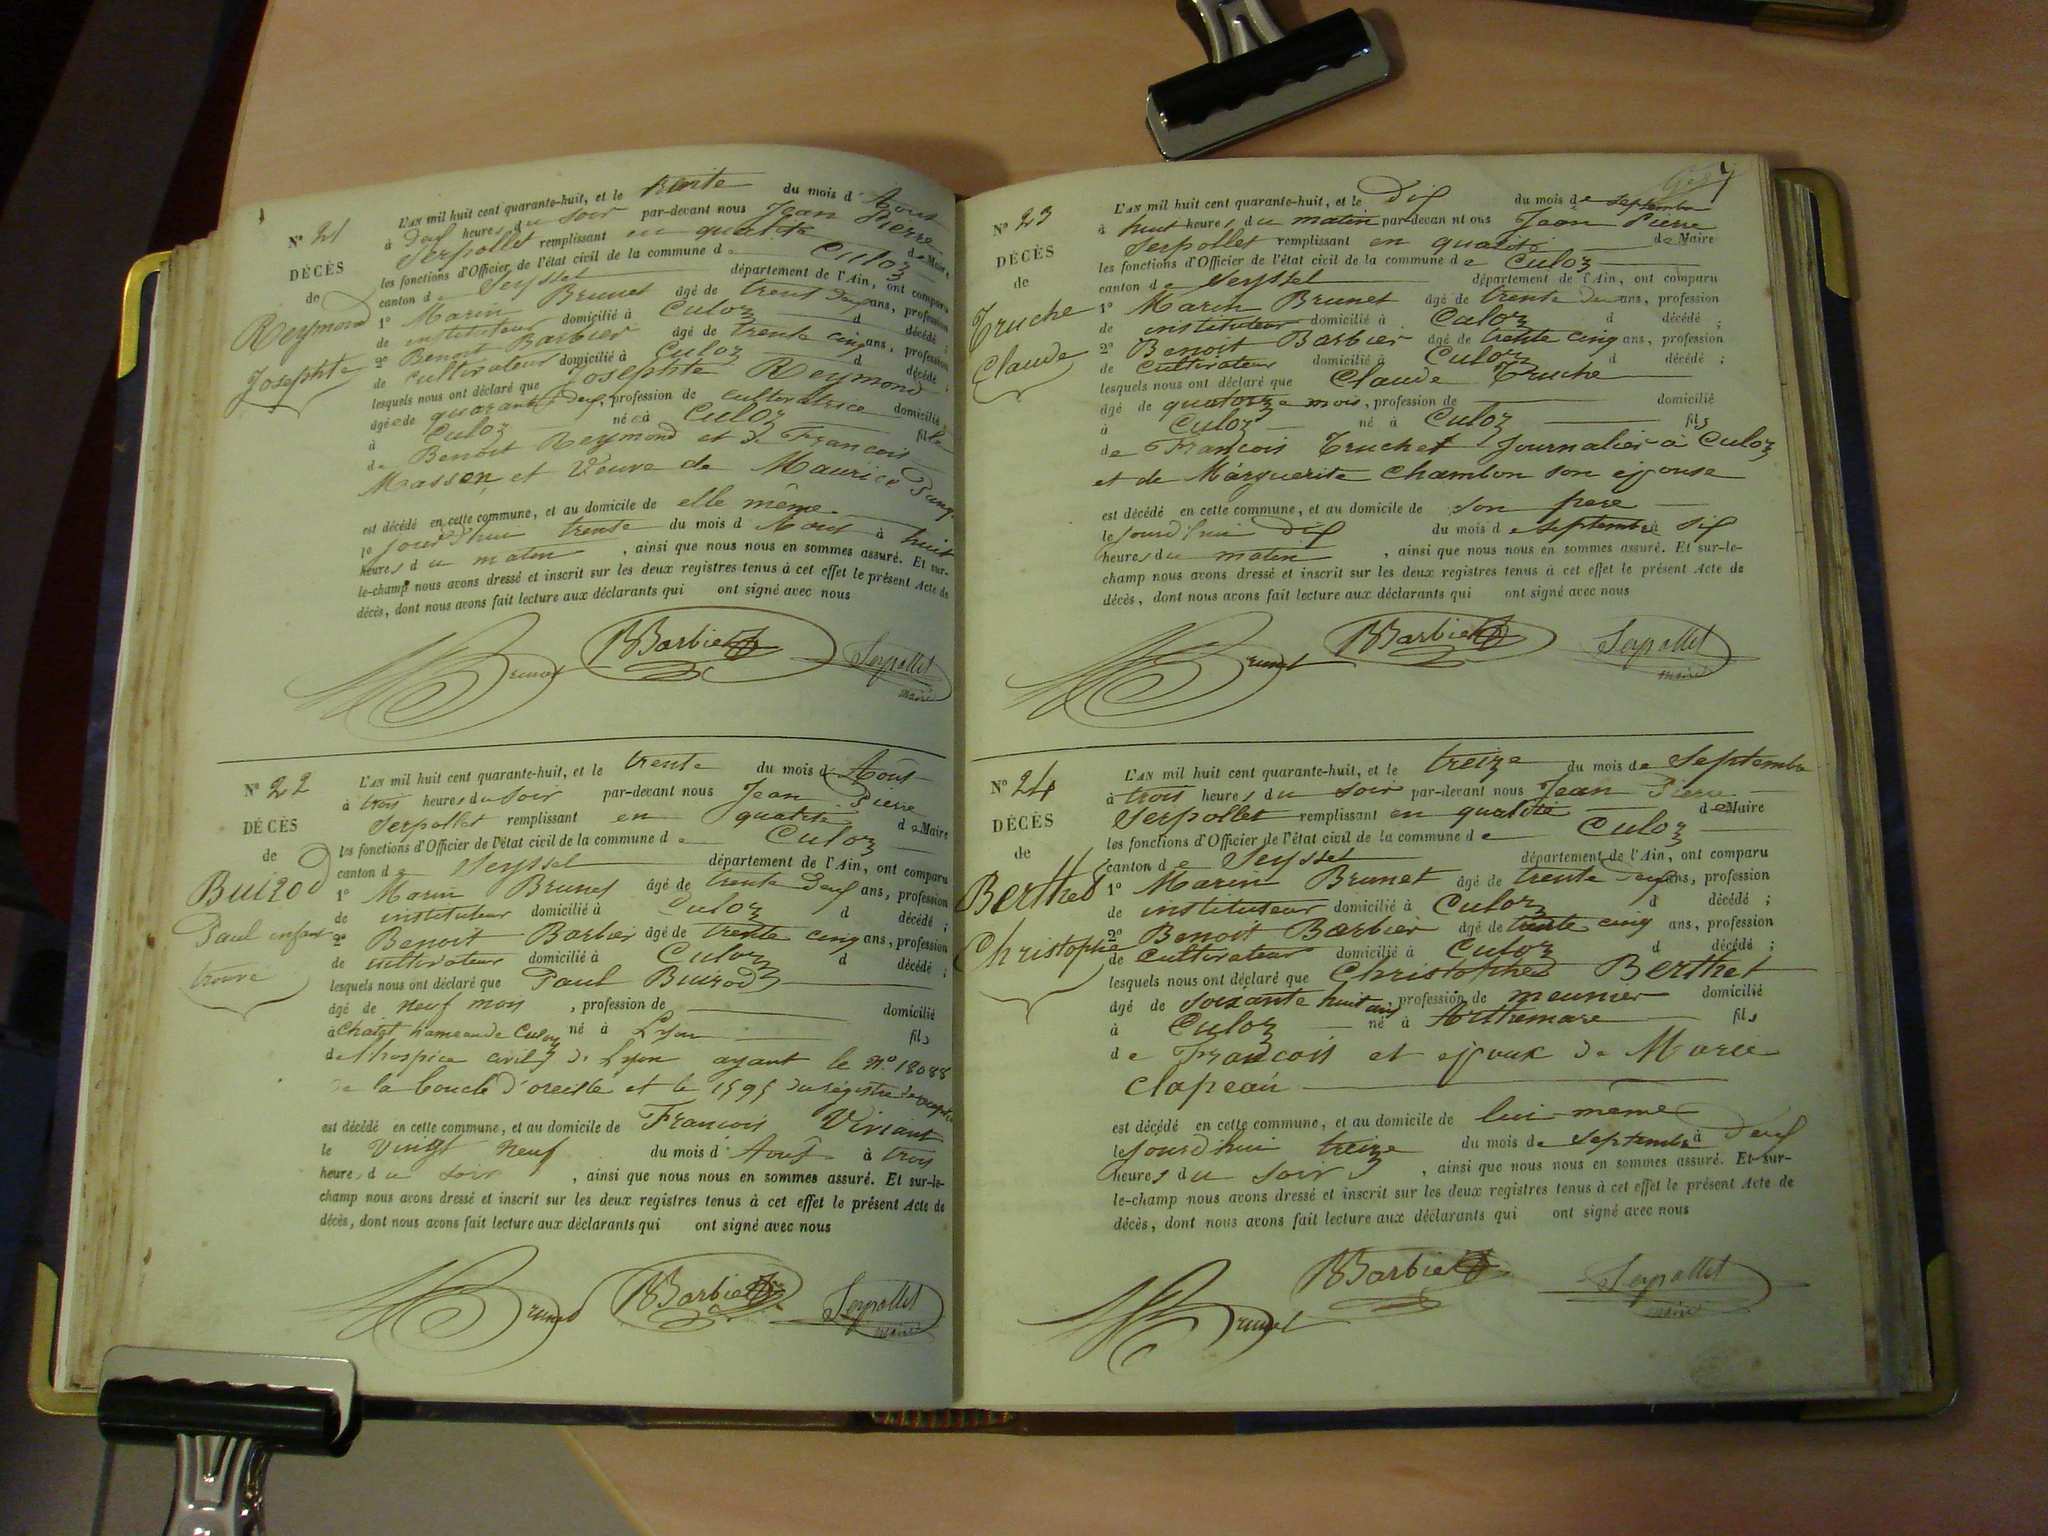 N° 21
DÉCÈS
de
Reymond
Josephte
L'AN mil huit cent quarante-huit, et le trente du mois d'Aout
à deux heures du soir par-devant nous Jean Pierre
Serpollet remplissant en qualité de Maire,
les fonctions d'Officier de l'état civil de la commune de Culoz
canton de Seyssel département de l'Ain, ont comparu
1° Marin Brunet âgé de trent deux ans, profession
de instituteur domicilié à Culoz d décédé ;
2° Benoit Barbier âgé de trente cinq ans, profession
de cultivateur domicilié à Culoz d décédé ;
lesquels nous ont déclaré que Josephte Reymond
âgée de quarante deux, profession de cultivatrice domicilié
à Culoz née à Culoz fille
de Benoit Reymond et de Francois
Masson et Veuve de Maurice
est décédé en cette commune, et au domicile de elle même
le jourd'hui trente du mois d'Aout à huit
heures du matin, ainsi que nous nous en sommes assuré. Et sur-
le-champ nous avons dressé et inscrit sur les deux registres tenus à cet effet le présent Acte de
décès, dont nous avons fait lecture aux déclarants qui ont signé avec nous
Brunet BBarbier Serpollet
maire
N° 22
DÉCÈS
de
Buizod
Paul enfant
trouvé
L'AN mil huit cent quarante-huit, et le trente du mois d'Août
à trois heures du soir par-devant nous Jean Pierre
Serpollet remplissant en qualité de Maire
les fonctions d'Officier de l'état civil de la commune de Culoz
canton de Seyssel département de l'Ain, ont comparu
1° Marin Brunet âgé de trente deux ans, profession
de instituteur domicilié à Culoz d décédé ;
2° Benoit Barbier âgé de trente cinq ans, profession
de cultivateur domicilié à Culoz d décédé ;
lesquels nous ont déclaré que Paul Buizod
âgé de neuf mois, profession de domicilié
à Chatel hameau de Culoz né à Lyon fils
de l'hospice civil de Lyon ayant le N° 18088
de la boucle d'oreille et le 1595 du régistre de
est décédé en cette commune, et au domicile de Francois Viviant
le vingt neuf du mois d'Août à trois
heures du soir, ainsi que nous nous en sommes assuré. Et sur-le-
champ nous avons dressé et inscrit sur les deux registres tenus à cet effet le présent Acte de
décès, dont nous avons fait lecture aux déclarants qui ont signé avec nous
Brunet BBarbier Serpollet
maire
N° 23
DÉCÈS
de
Truche
Claude
L'AN mil huit cent quarante-huit, et le Dix du mois de Septembre
à huit heures du matin par-devant nous Jean Pierre
Serpollet remplissant en qualité de Maire
les fonctions d'Officier de l'état civil de la commune de Culoz
canton de Seyssel département de l'Ain, ont comparu
1° Marin Brunet âgé de trente deux ans, profession
de instituteur domicilié à Culoz d décédé ;
2° Benoit Barbier âgé de trente cinq ans, profession
de cultivateur domicilié à Culoz d décédé ;
lesquels nous ont déclaré que Claude Truche
âgé de quatorze mois, profession de domicilié
à Culoz né à Culoz fils
de François Truchet Journalier à Culoz
et de Marguerite Chambon son epouse
est décédé en cette commune, et au domicile de son pere
le jourd'hui dix du mois de septembre à six
heures du matin, ainsi que nous nous en sommes assuré. Et sur-le-
champ nous avons dressé et inscrit sur les deux registres tenus à cet effet le présent Acte de
décès, dont nous avons fait lecture aux déclarants qui ont signé avec nous
Brunet BBarbier Serpollet
maire
N° 24
DÉCÈS
de
Berthet
Christophe
L'AN mil huit cent quarante-huit, et le treize du mois de Septembre
à trois heures du soir par-devant nous Jean Pierre
Serpollet remplissant en qualité de Maire
les fonctions d'Officier de l'état civil de la commune de Culoz
canton de Seyssel département de l'Ain, ont comparu
1° Marin Brunet âgé de trente deux ans, profession
de instituteur domicilié à Culoz d décédé ;
2° Benoit Barbier âgé de trente cinq ans, profession
de cultivateur domicilié à Culoz d décédé ;
lesquels nous ont déclaré que Christophe Berthet
âgé de soixante huit ans, profession de meunier domicilié
à Culoz né à Arthemare fils
de Francois et epoux de Marie
Clapeau
est décédé en cette commune, et au domicile de lui-même
le jourd'hui treize du mois de septembre à deux
heures du soir, ainsi que nous nous en sommes assuré. Et sur-
le-champ nous avons dressé et inscrit sur les deux registres tenus à cet effet le présent Acte de
décès, dont nous avons fait lecture aux déclarants qui ont signé avec nous
Brunet BBarbier Serpollet
maire